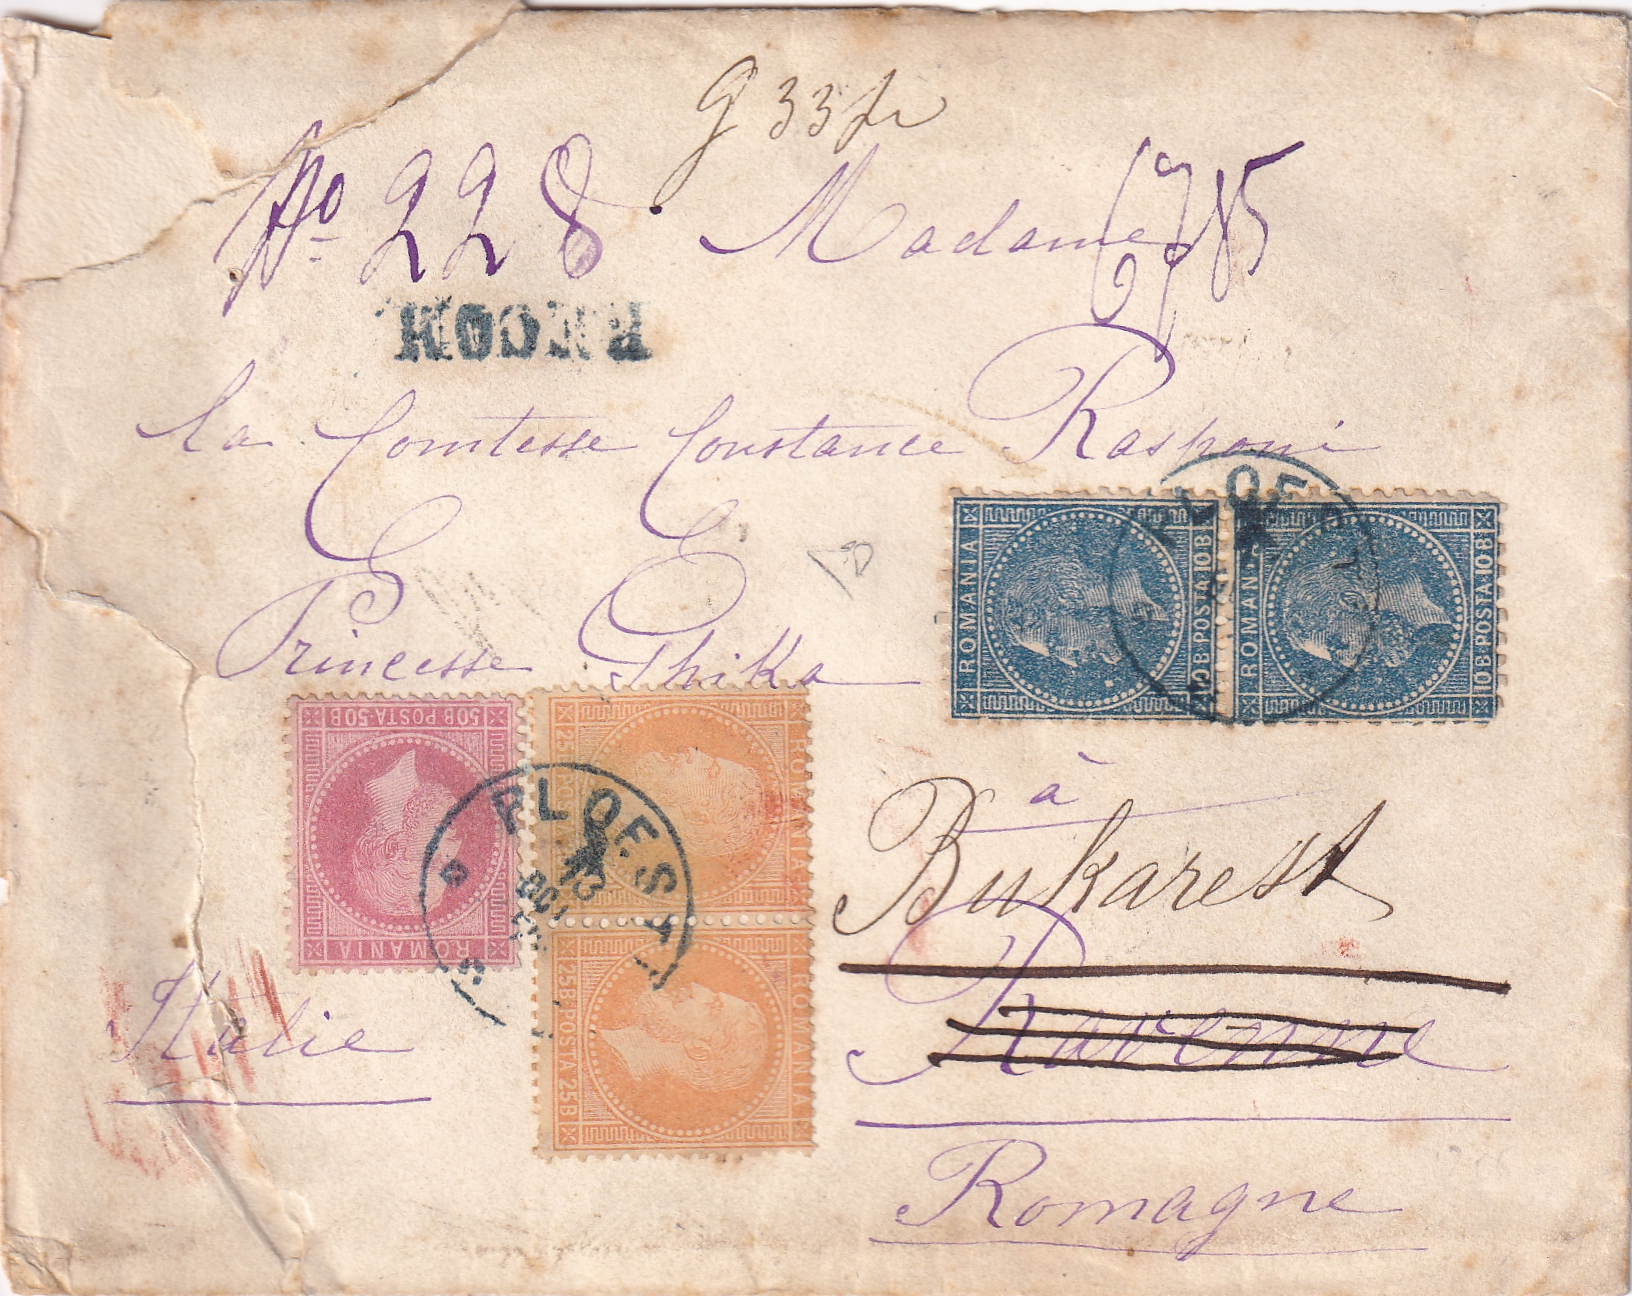 G 33 fr
No 228 Madame 6785
RECOM
la Comtesse Constance Rasponi
Princesse Ghika
ROMANIA
10B POSTA 10B
ROMANIA
10B POSTA 10B
PLOESCI
50B POSTA 50B
ROMANIA
25B POSTA 25B
ROMANIA
25B POSTA 25B
ROMANIA
PLOESCI
à
Bukarest
Ravenne
Italie
Romagne